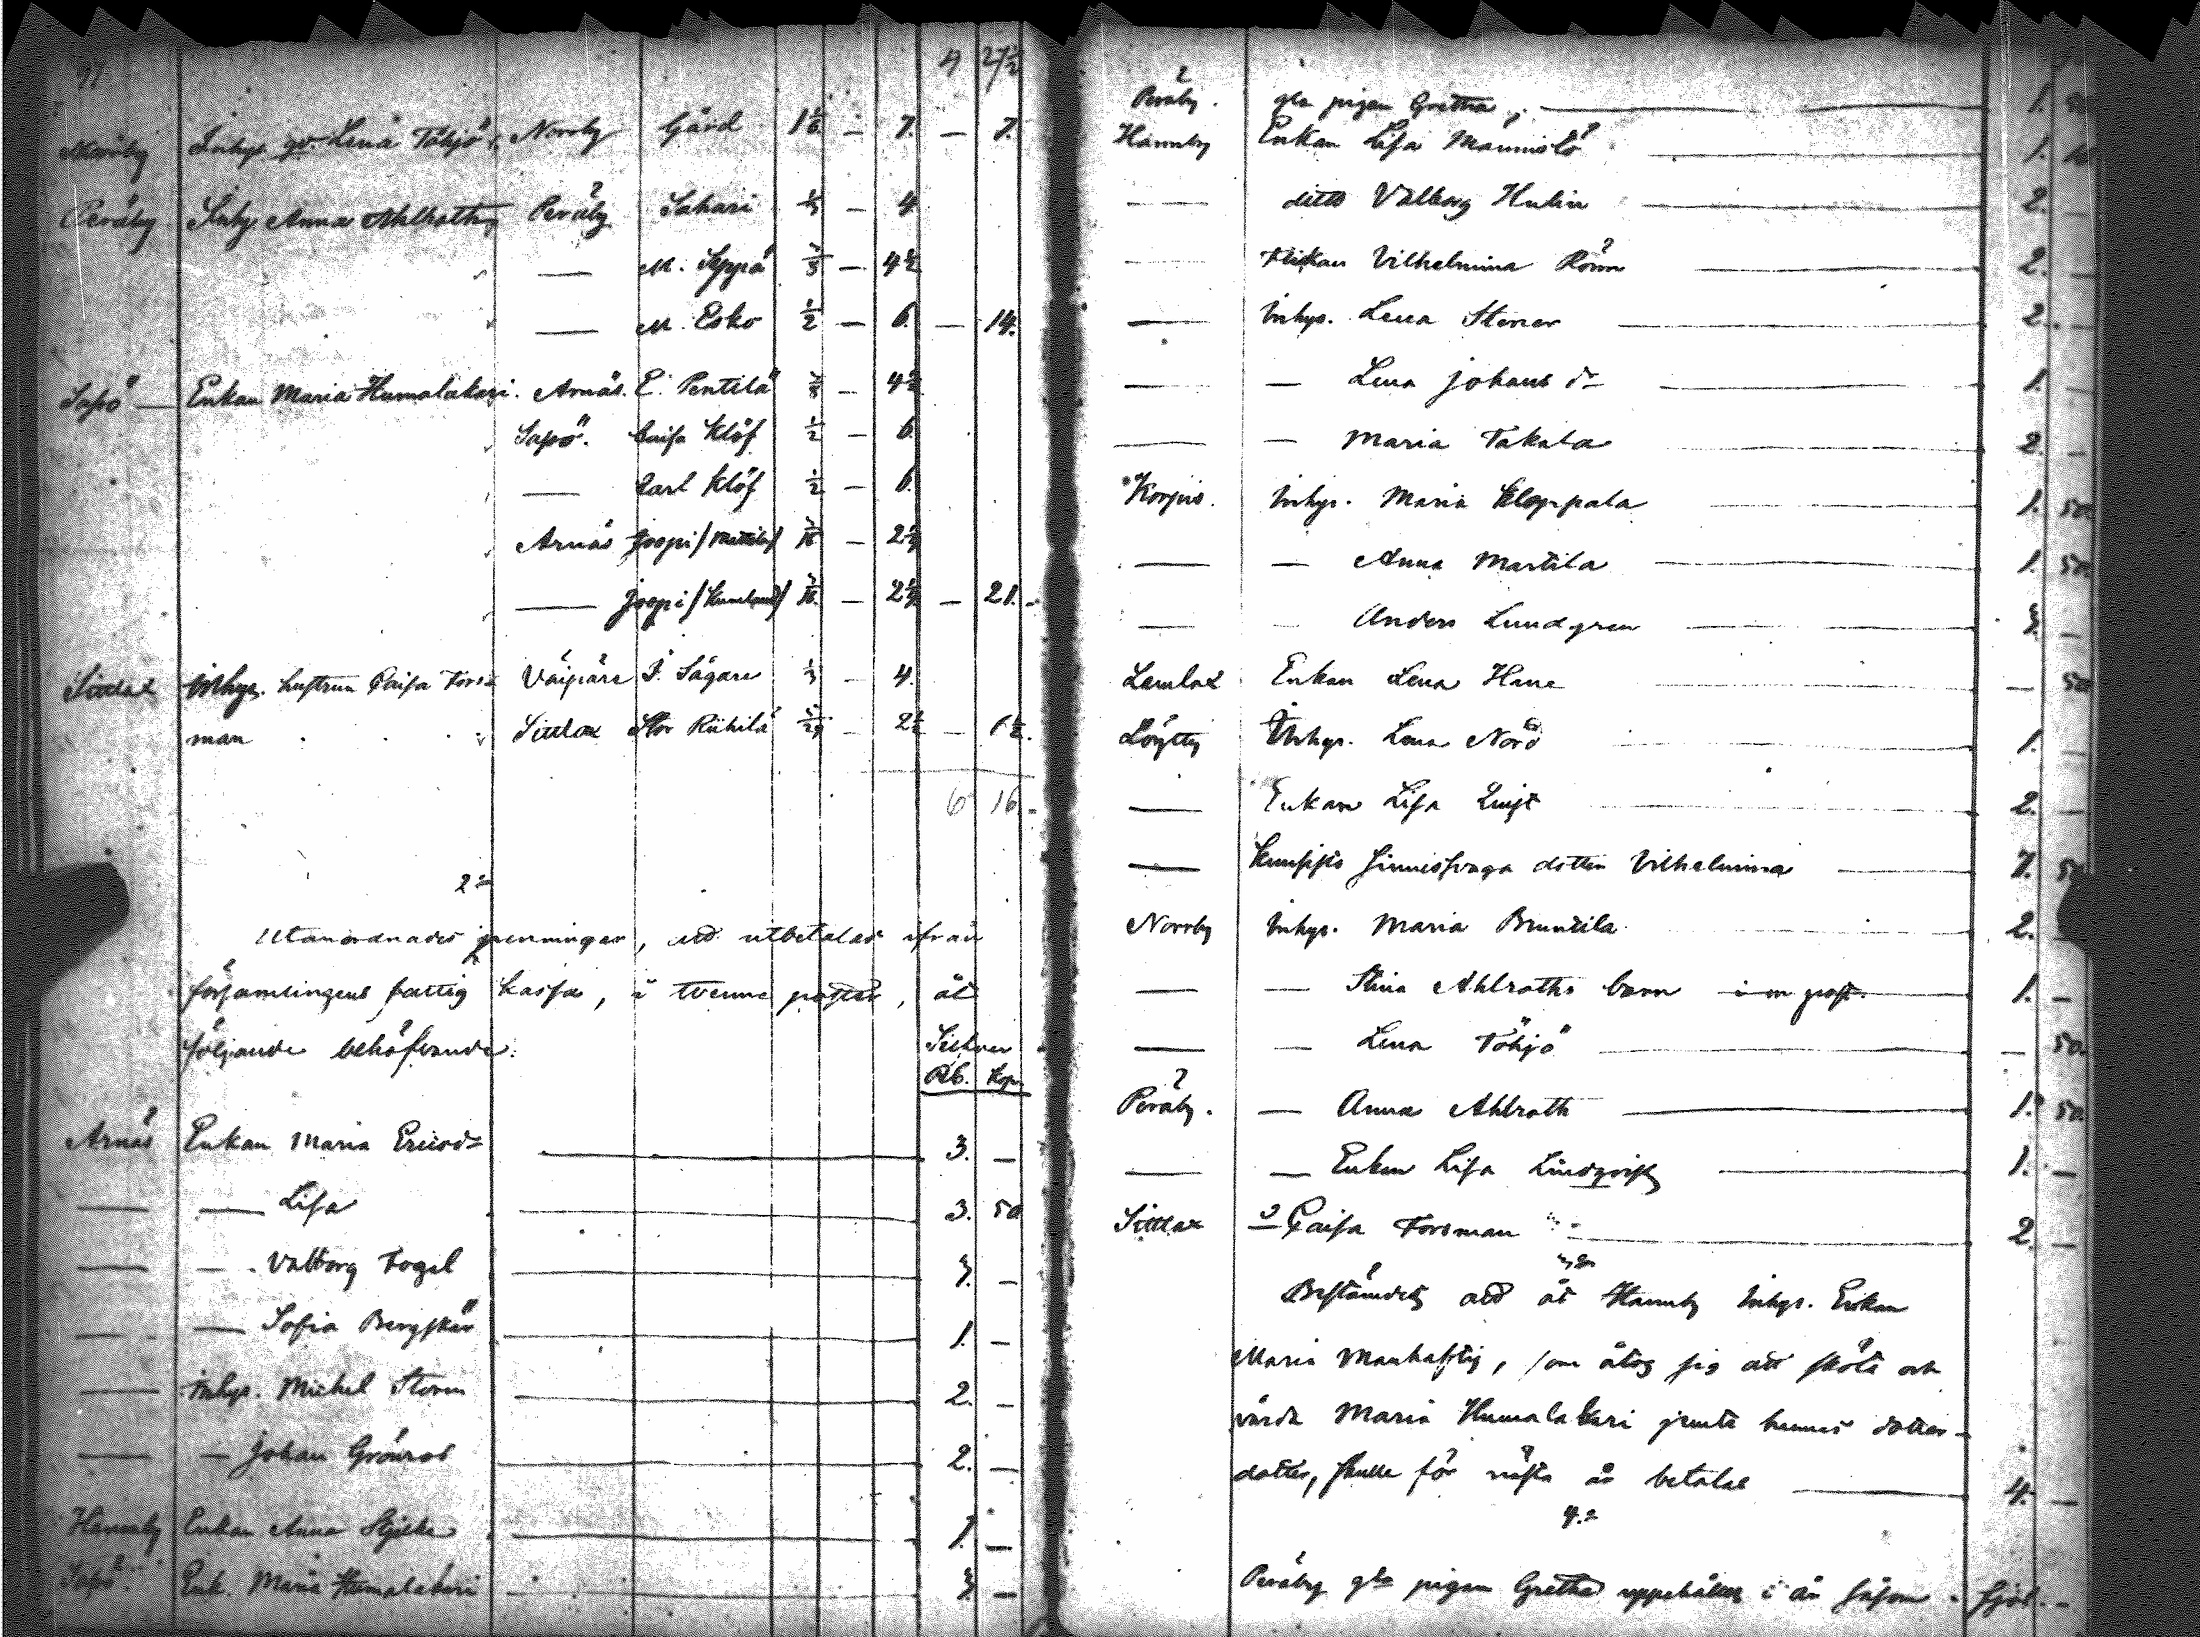 4 27½
Norrby Inhys. gv. Lena Töhjö Norrby Gård 1⅙ — 7. — 7.
Peräby Inhy Anna Ahlroth Peräby Sakari ⅓ — 4
— M. Seppä ⅜ — 4½
— M. Esko ½ — 6. — 14.
Sapö — Enkan Maria Humalakari. Arnäs. E. Pentilä ⅜ — 4½
Sapö. Caisa Klöf ½ — 6.
— Carl Klöf ½ — 6.
Arnäs Joopi /Mattila/ — 2¼
— Joopi — 2¼ — 21.
Sittlax Inhys. hustrun Caisa Fors- Väipäre S. Sågare ⅓ — 4.
man Sittlax Stor Riihilä — 2½ — 6½.
6 16.
2=
Utanordnades penningar, att utbetalas ifrån
församlingens fattig kassa, i tvenne poster, åt
följande behöfvande:
Silfver
Rb. Kop.
Arnäs Enkan Maria Ericsd= 3. —
— — Lisa 3. 50
— — Valborg Fogel 3. —
— — Sofia Bergskär 1. —
— Inhys. Michel Storm 2. —
— — Johan Grönros 2. —
Hannby Enkan Anna 1. —
Sapö. Enk. Maria Humalakari 3. —
Peräby. gla pigan Gretha 1.
Hannby Enkan Lisa Mannistö 1.
— ditto Valborg Hulin 2. —
— Flickan Vilhelmina Rönn 2. —
— Inhys. Lena Stener 2. —
— — Lena Johans d= 1. —
— — Maria Takala 2 —
Korpis. Inhys. Maria Kloppala 1. 50
— — Anna Martila 1. 50
— — Anders Lundgren 3. —
Lamlax Enkan Lena Hane — 50
Löytty Inhys. Lena Nord 1. —
— Enkan Lisa Quist 2. —
— sinnessvaga dottern Vilhelmina 7. 50
Norrby Inhys. Maria Bruntila 2. —
— — Stina Ahlroths barn i en post. 1. —
— — Lena Töhjö — 50
Peräby. — Anna Ahlroth 1. 50
— — Enkan Lisa Lindqvist 1. —
Sittlax Caisa Forsman 2. —
3=
Bestämdes att åt Hannby Inhys. Enkan
Maria Manhaftig, som åtog sig att sköta och
vårda Maria Humalakari jemte hennes dotter-
dotter, skulle för nästa år betalas 4. —
4.=
Peräby gla pigan Gretha uppehålles i år såsom